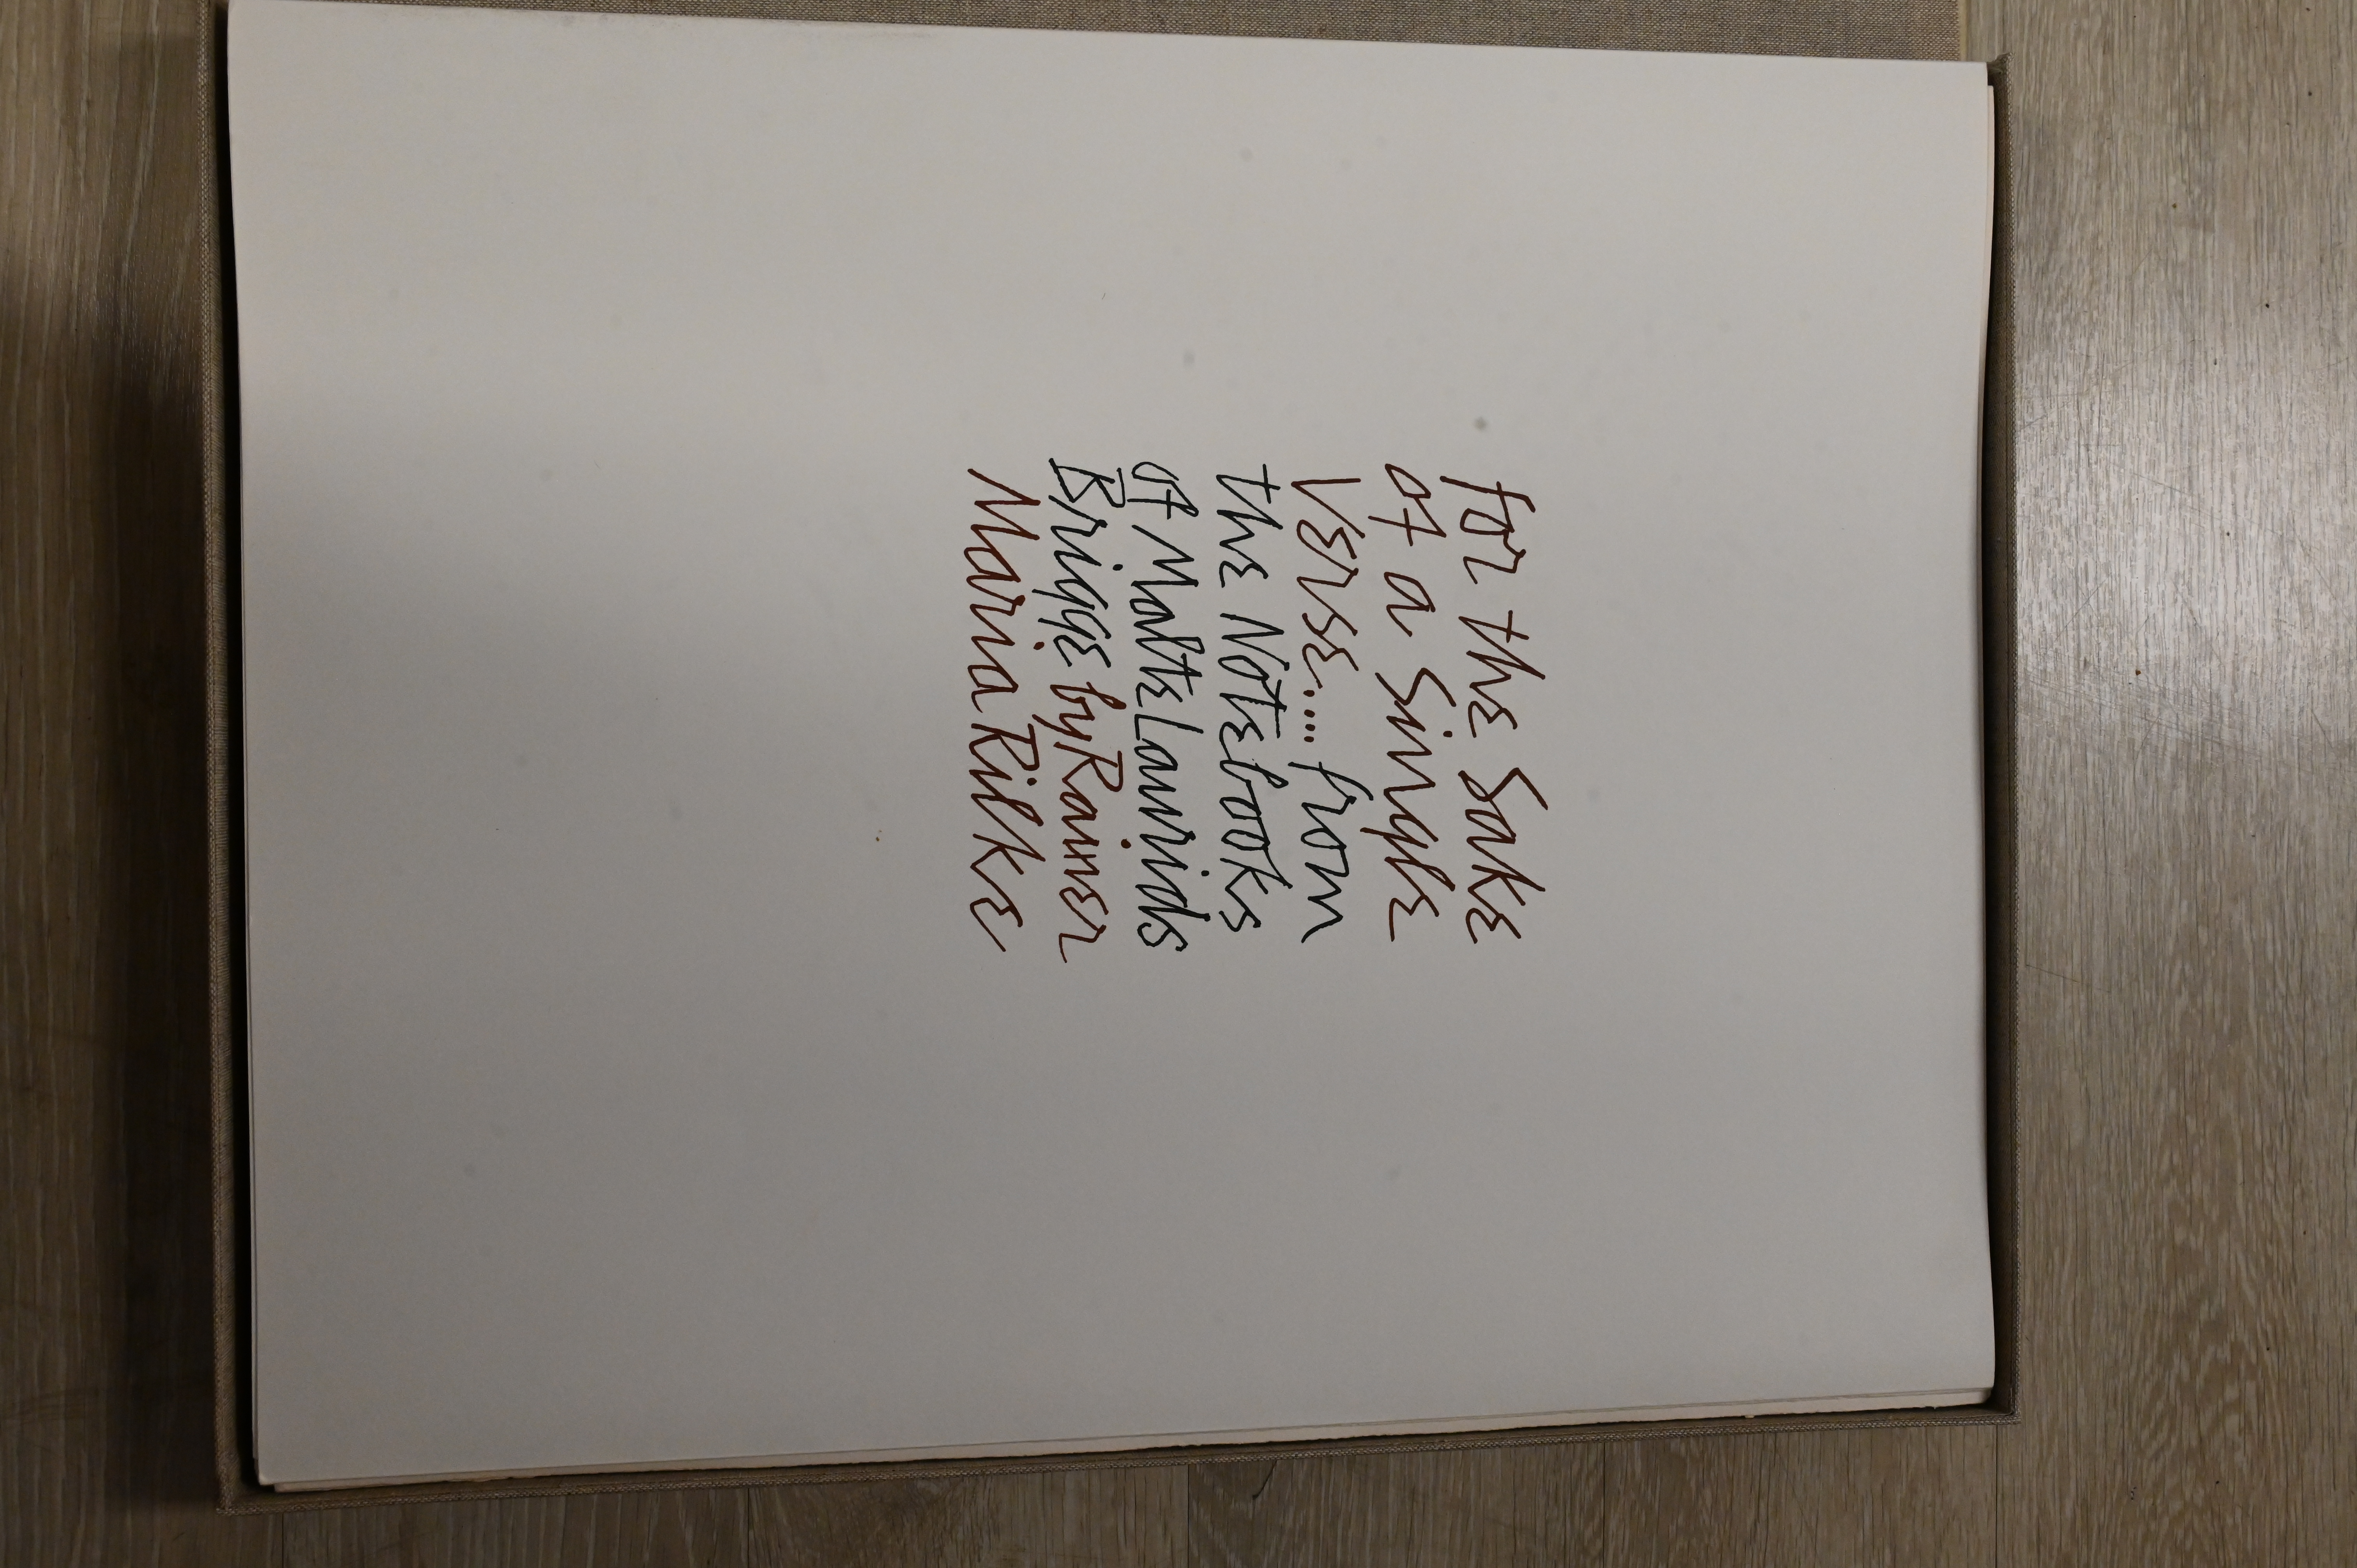 for the Sake
of a Single
Verse.... from
the Notebooks
of Malte Laurids
Brigge by Rainer
Maria Rilke